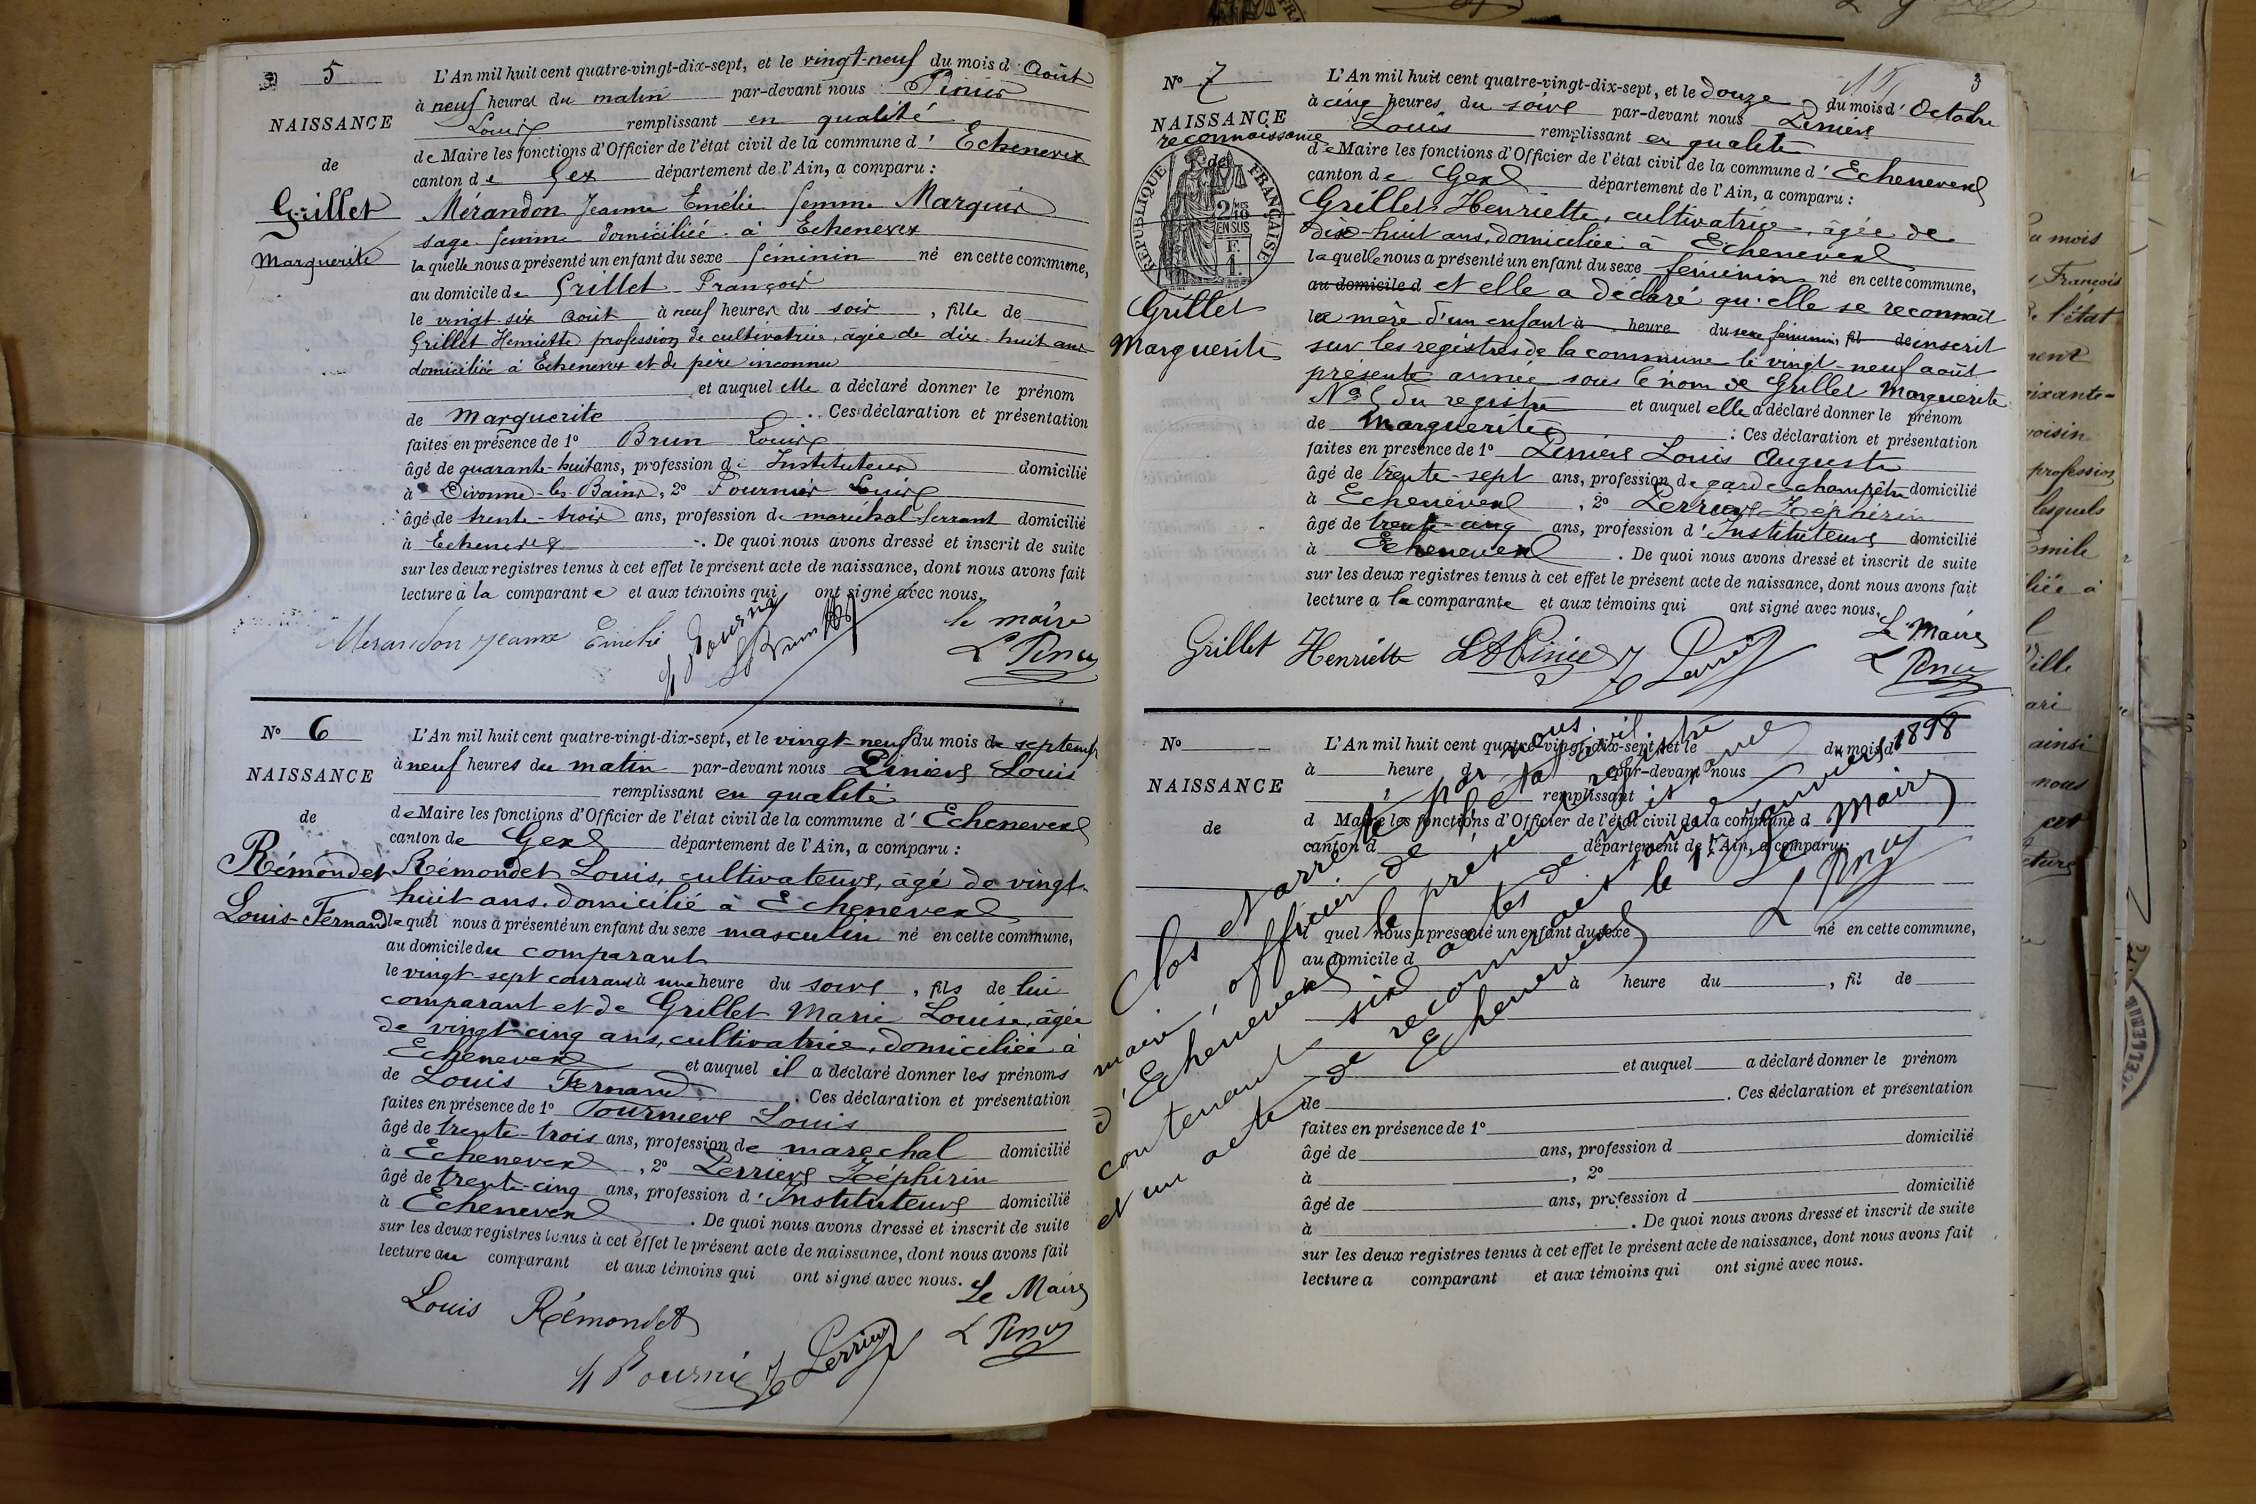 N° 5
NAISSANCE
de
Grillet
Marguerite
L'An mil huit cent quatre-vingt-dix-sept, et le vingt-neuf du mois d'Août
à neuf heures du matin par-devant nous Pinier
Louis remplissant en qualité
de Maire les fonctions d'Officier de l'état civil de la commune d'Echenevex
canton de Gex département de l'Ain, a comparu :
Mérandon Jeanne Emélie femme Marquis
sage femme domiciliée à Echenevex
laquelle nous a présenté un enfant du sexe féminin né en cette commune,
au domicile de Grillet François
le vingt-six août à neuf heures du soir, fille de
Grillet Henriette profession de cultivatrice, âgée de dix-huit ans
domiciliée à Echenevex et de père inconnu
et auquel elle a déclaré donner le prénom
de Marguerite. Ces déclaration et présentation
faites en présence de 1° Brun Louis
âgé de quarante-huit ans, profession d'Instituteur domicilié
à Divonne-les-Bains, 2° Fournier Louis
âgé de trente-trois ans, profession de maréchal-ferrant domicilié
à Echenevex. De quoi nous avons dressé et inscrit de suite
sur les deux registres tenus à cet effet le présent acte de naissance, dont nous avons fait
lecture à la comparante et aux témoins qui ont signé avec nous.
Merandon Jeanne Emélie
le maire
N° 6
NAISSANCE
de
Rémondet
Louis-Fernand
L'An mil huit cent quatre-vingt-dix-sept, et le vingt-neuf du mois de septembre
à neuf heures du matin par-devant nous Piniere Louis
remplissant en qualité
de Maire les fonctions d'Officier de l'état civil de la commune d'Echenevex
canton de Gex département de l'Ain, a comparu :
Rémondet Louis, cultivateur, âgé de vingt-
huit ans, domicilié à Echenevex
lequel nous a présenté un enfant du sexe masculin né en cette commune,
au domicile du comparant
le vingt-sept courant à une heure du soir, fils de lui
comparant et de Grillet Marie Louise, âgée
de vingt-cinq ans, cultivatrice, domiciliée à
Echenevex et auquel il a déclaré donner les prénoms
de Louis Fernand. Ces déclaration et présentation
faites en présence de 1° Fournier Louis
âgé de trente-trois ans, profession de marechal domicilié
à Echenevex, 2° Perrier Zéphirin
âgé de trente-cinq ans, profession d'Instituteur domicilié
à Echenevex. De quoi nous avons dressé et inscrit de suite
sur les deux registres tenus à cet effet le présent acte de naissance, dont nous avons fait
lecture au comparant et aux témoins qui ont signé avec nous.
Le Maire
Louis Rémondet
3
N° 7
NAISSANCE
reconnaissance
de
RÉPUBLIQUE FRANÇAISE
2/10 EN SUS
Grillet
Marguerite
L'An mil huit cent quatre-vingt-dix-sept, et le douze du mois d'Octobre
à cinq heures du soir par-devant nous Pinier
Louis remplissant en qualité
de Maire les fonctions d'Officier de l'état civil de la commune d'Echenevex
canton de Gex département de l'Ain, a comparu :
Grillet Henriette, cultivatrice, âgée de
dix-huit ans, domiciliée à Echenevex
laquelle nous a présenté un enfant du sexe féminin né en cette commune,
au domicile d et elle a déclaré qu'elle se reconnait
la mère d'un enfant à heure du sexe féminin, fil de inscrit
sur les registres de la commune le vingt-neuf août
présente année sous le nom de Grillet Marguerite
N° 5 du registre et auquel elle a déclaré donner le prénom
de Marguerite. Ces déclaration et présentation
faites en présence de 1° Pinier Louis Auguste
âgé de trente-sept ans, profession de garde champêtre domicilié
à Echenevex, 2° Perrier Zéphirin
âgé de trente-cinq ans, profession d'Instituteur domicilié
à Echenevex. De quoi nous avons dressé et inscrit de suite
sur les deux registres tenus à cet effet le présent acte de naissance, dont nous avons fait
lecture a la comparante et aux témoins qui ont signé avec nous.
Le Maire
Grillet Henriette
N°
NAISSANCE
de
L'An mil huit cent quatre-vingt-dix-sept, et le du mois d
à heure d par-devant nous
remplissant
d Maire les fonctions d'Officier de l'état civil de la commune d
canton d département de l'Ain, a comparu :
l quel nous a présenté un enfant du sexe né en cette commune,
au domicile d
le à heure du, fil de
et auquel a déclaré donner le prénom
de. Ces déclaration et présentation
faites en présence de 1°
âgé de ans, profession d domicilié
à, 2°
âgé de ans, profession d domicilié
à. De quoi nous avons dressé et inscrit de suite
sur les deux registres tenus à cet effet le présent acte de naissance, dont nous avons fait
lecture a comparant et aux témoins qui ont signé avec nous.
Clos et arrêté par nous
maire, officier de l'état civil
d'Echenevex le présent registre
contenant six actes de naissance
et un acte de reconnaissance
Echenevex le 1er Janvier 1898
Le Maire